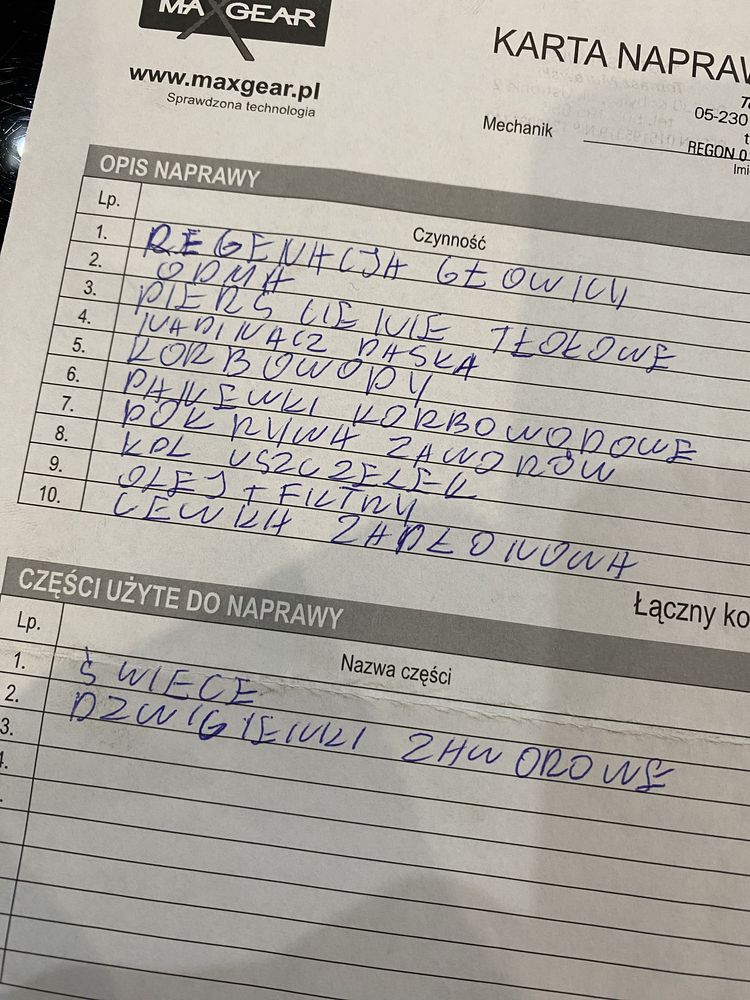 MAXGEAR
www.maxgear.pl
Sprawdzona technologia
KARTA NAPRAW
05-230
Mechanik
REGON 0
Imi
OPIS NAPRAWY
Lp.
Czynność
1. REGENACJA GŁOWICY
2. ODMA
3. PIERŚCIENIE TŁOŁOWE
4. NAPINACZ PASKA
5. KORBOWODY
6. PANEWKI KORBOWODOWE
7. POKRYWA ZAWORÓW
8. KPL USZCZELEK
9. OLEJ + FILTRY
10. CEWKA ZAPŁONOWA
Łączny ko
CZĘŚCI UŻYTE DO NAPRAWY
Lp.
Nazwa części
1. ŚWIECE
2. DZWIGIENKI ZAWOROWE
3.